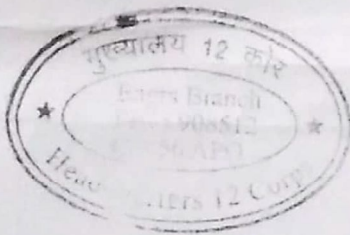 मुख्यालय 12 कोर
Engrs Branch
908512
56 APO
Headquarters 12 Corps